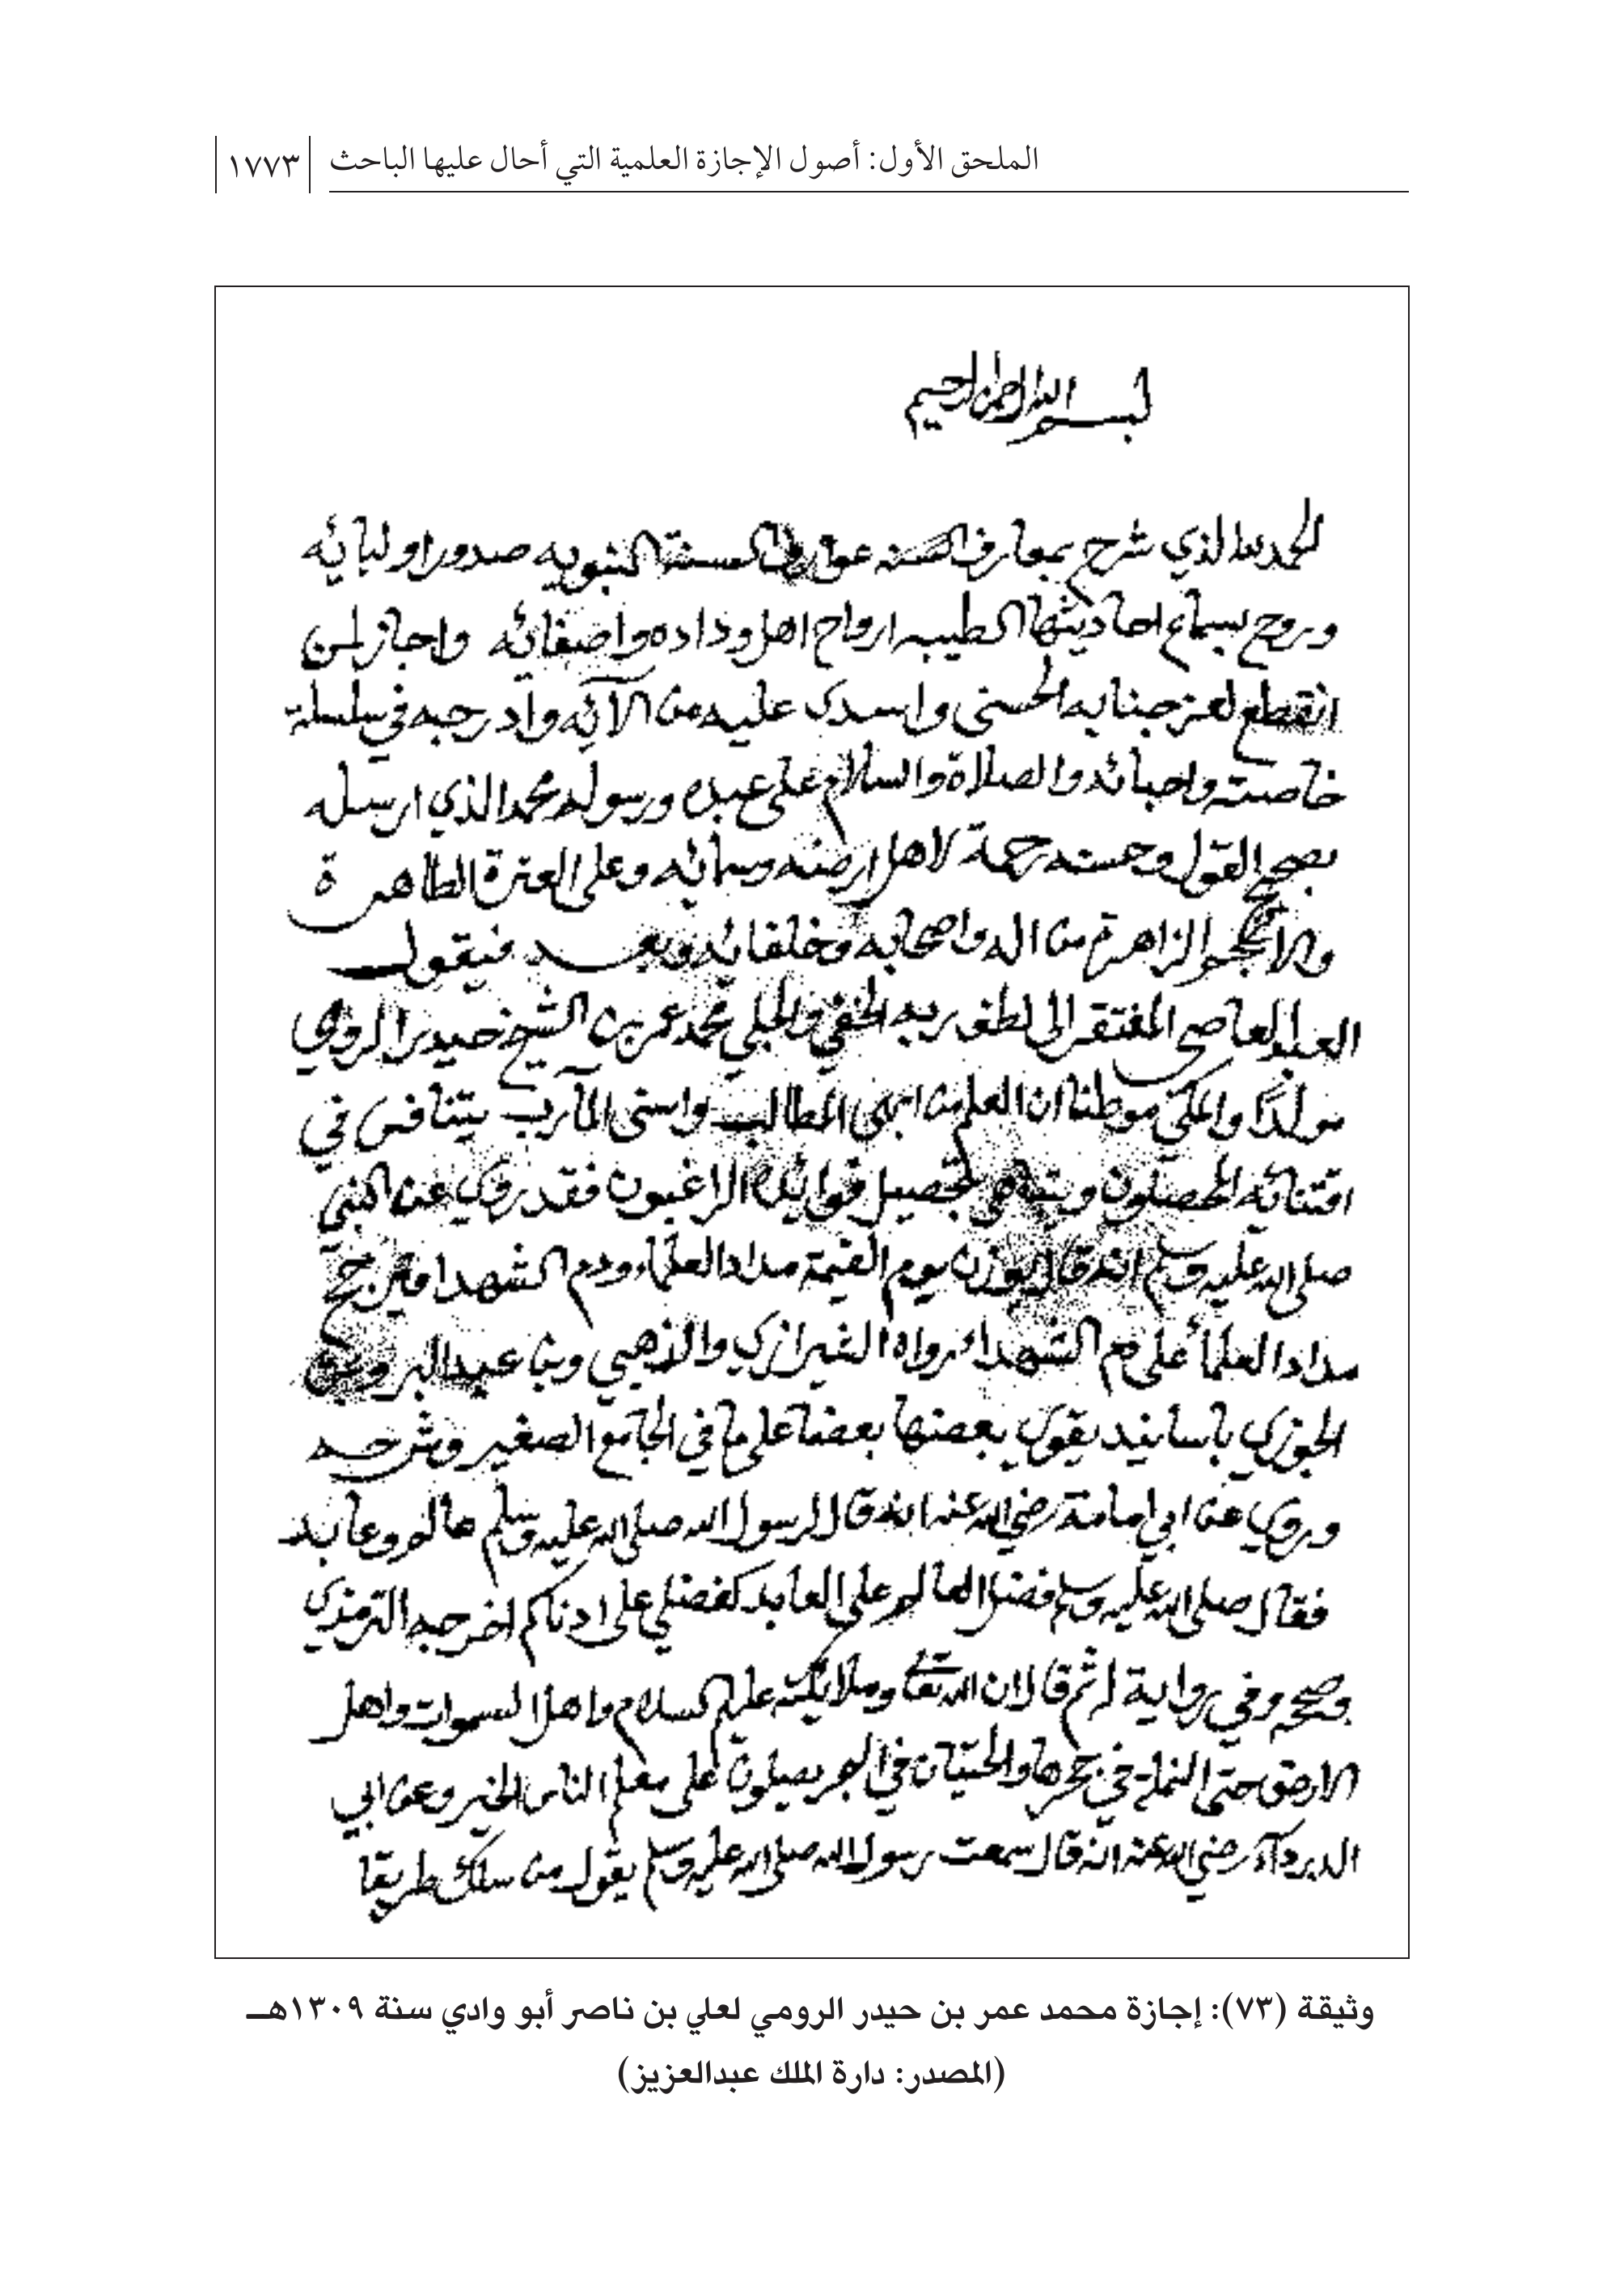 الملحق الأول: أصول الإجازة العلمية التي أحال عليها الباحث
١٧٧٣
بسم الله الرحمن الرحيم
الحمد لله الذي شرح بمعارف السنة النبويه صدور اوليائه
وروح بسماع احاديثها الطيبه ارواح اهل وداده واصفيائه واجاز لمن
انقطع لعز جنابه الحسنى واسدى عليه من الآئه وادرجه في سلسلة
خاصته واحبائه والصلاة والسلام على عبده ورسوله محمد الذي ارسله
بصحيح القول وحسنه رحمة لاهل ارضه وسمائه وعلى العترة الطاهرة
والانجم الزاهرة من اله واصحابه وخلفائه وبعد فيقول
العبد العاصي المفتقر الى لطف ربه الخفي والجلي محمد عمر بن الشيخ حيدر الرومي
مولدًا والمكي موطنا ان العلم من ابهى المطالب واسنى المآرب يتنافس في
اقتنائه المحصلون ويتباهى بتحصيل فوائده الراغبون فقد روي عن النبي
صلى الله عليه وسلم انه قال يوزن يوم القيمة مداد العلماء ودم الشهدا فيرجح
مداد العلمأ على دم الشهداء رواه الشيرازي والذهبي وبن عبد البر وبن
الجوزي باسانيد يقوي بعضها بعضا على ما في الجامع الصغير وشرحه
وروي عن ابي امامة رضي الله عنه انه قال لرسول الله صلى الله عليه وسلم عالم وعابد
فقال صلى الله عليه وسلم فضل العالم على العابد كفضلي على ادناكم اخرجه الترمذي
وصححه وفي رواية له ثم قال ان الله تعالى وملائكته عليهم السلام واهل السموات واهل
الارض حتى النملة في جحرها والحيتان في البحر يصلون على معلم الناس الخير وعن ابي
الدردآء رضي الله عنه انه قال سمعت رسول الله صلى الله عليه وسلم يقول من سلك طريقا
وثيقة (٧٣): إجازة محمد عمر بن حيدر الرومي لعلي بن ناصر أبو وادي سنة ١٣٠٩هـ
(المصدر: دارة الملك عبدالعزيز)